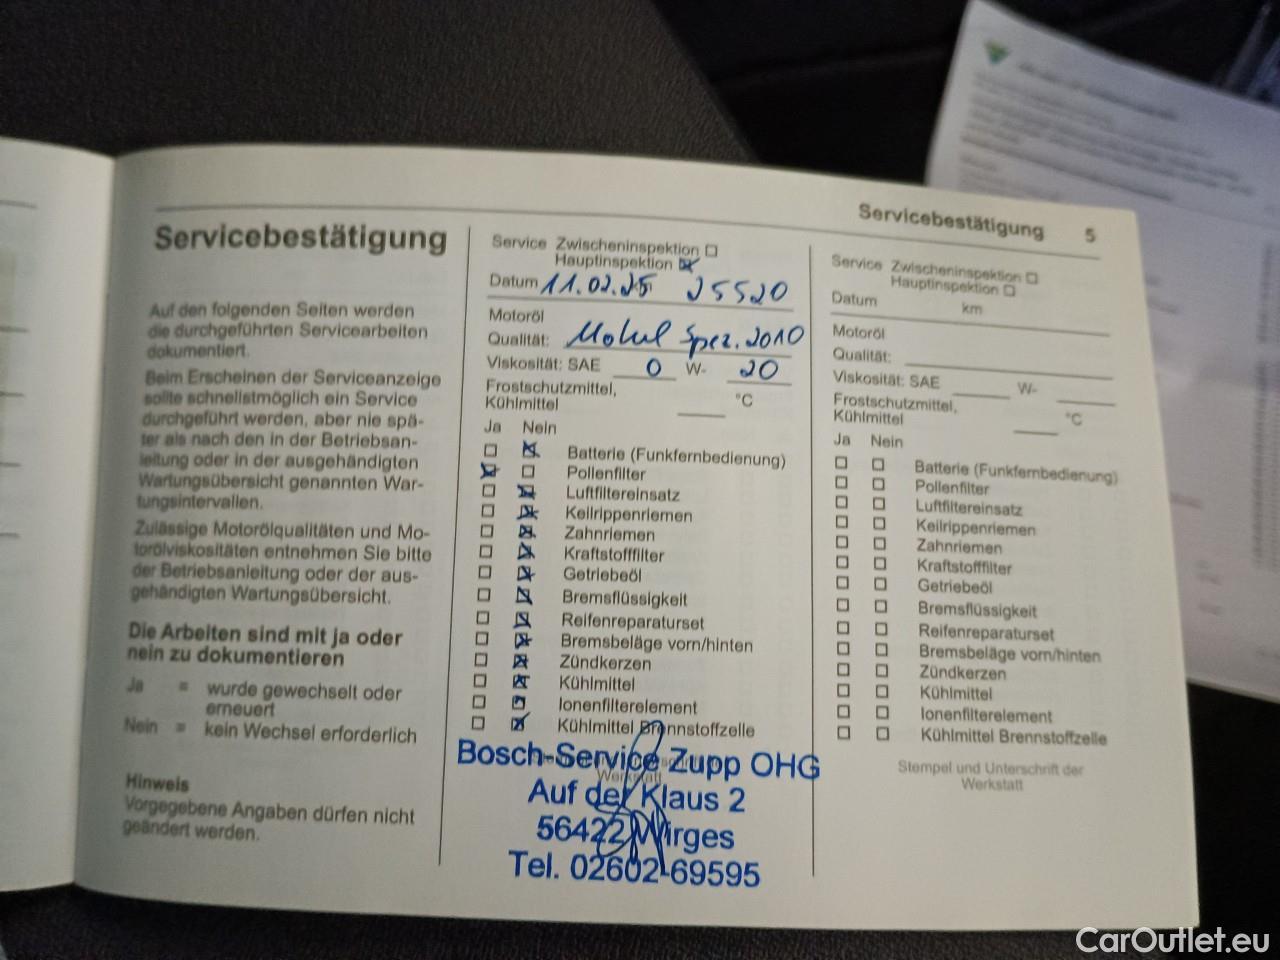 Servicebestätigung 5
Servicebestätigung
Auf den folgenden Seiten werden
die durchgeführten Servicearbeiten
dokumentiert.
Beim Erscheinen der Serviceanzeige
sollte schnellstmöglich ein Service
durchgeführt werden, aber nie spä-
ter als nach den in der Betriebsan-
leitung oder in der ausgehändigten
Wartungsübersicht genannten War-
tungsintervallen.
Zulässige Motorölqualitäten und Mo-
torölviskositäten entnehmen Sie bitte
der Betriebsanleitung oder der aus-
gehändigten Wartungsübersicht.
Die Arbeiten sind mit ja oder
nein zu dokumentieren
Ja = wurde gewechselt oder
erneuert
Nein = kein Wechsel erforderlich
Hinweis
Vorgegebene Angaben dürfen nicht
geändert werden.
Service Zwischeninspektion
Hauptinspektion
Datum 11.02.25 km 25520
Motoröl
Qualität: Spez. 2010
Viskosität: SAE 0 W- 20
Frostschutzmittel,
Kühlmittel °C
Ja Nein
Batterie (Funkfernbedienung)
Pollenfilter
Luftfiltereinsatz
Keilrippenriemen
Zahnriemen
Kraftstofffilter
Getriebeöl
Bremsflüssigkeit
Reifenreparaturset
Bremsbeläge vorn/hinten
Zündkerzen
Kühlmittel
Ionenfilterelement
Kühlmittel Brennstoffzelle
Werkstatt
Bosch-Service Zupp OHG
Auf der Klaus 2
56422 Wirges
Tel. 02602-69595
Service Zwischeninspektion
Hauptinspektion
Datum km
Motoröl
Qualität:
Viskosität: SAE W-
Frostschutzmittel,
Kühlmittel °C
Ja Nein
Batterie (Funkfernbedienung)
Pollenfilter
Luftfiltereinsatz
Keilrippenriemen
Zahnriemen
Kraftstofffilter
Getriebeöl
Bremsflüssigkeit
Reifenreparaturset
Bremsbeläge vorn/hinten
Zündkerzen
Kühlmittel
Ionenfilterelement
Kühlmittel Brennstoffzelle
Stempel und Unterschrift der
Werkstatt
CarOutlet.eu